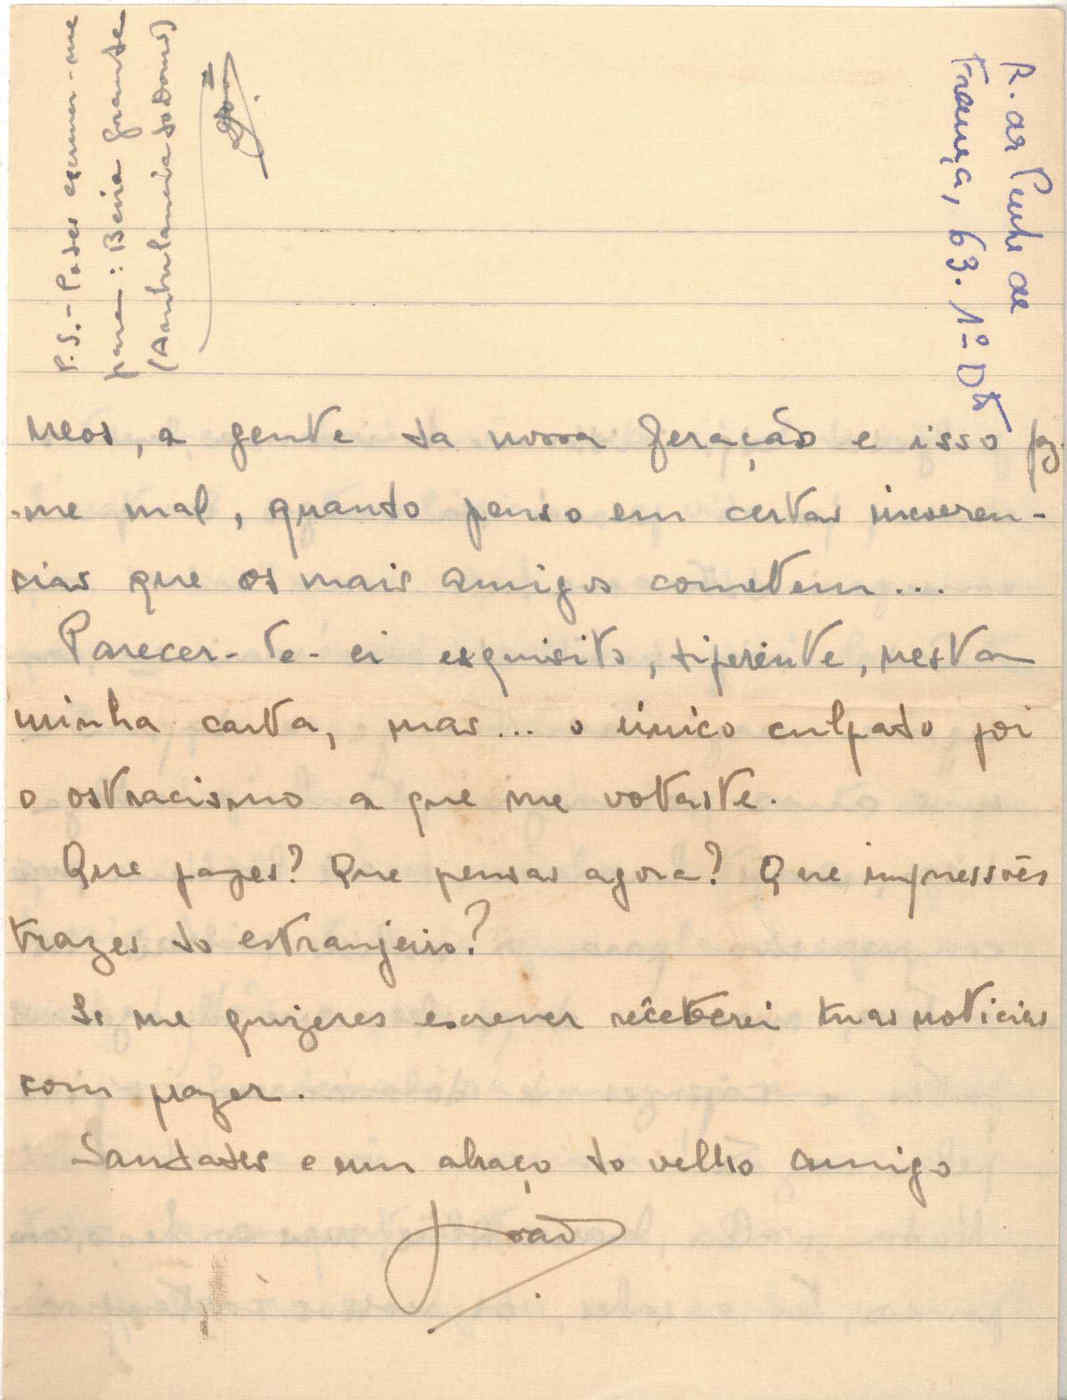 meos, a gente da nossa geração e isso faz-
-me mal, quando penso em certas incoeren-
cias que os mais amigos cometem...
Parecer-te-ei esquisito, diferente, nesta
minha carta, mas... o único culpado foi
o ostracismo a que me votaste.
Que fazes? Que pensas agora? Que impressões
trazes do estranjeiro?
Se me quizeres escrever receberei tuas noticias
com prazer.
Saudades e um abraço do velho amigo
João
P.S.- Podes escrever-me
para: Beira Grande
(Ambulancia do Douro)
João
R. da Penha de
França, 63. 1º Dtº